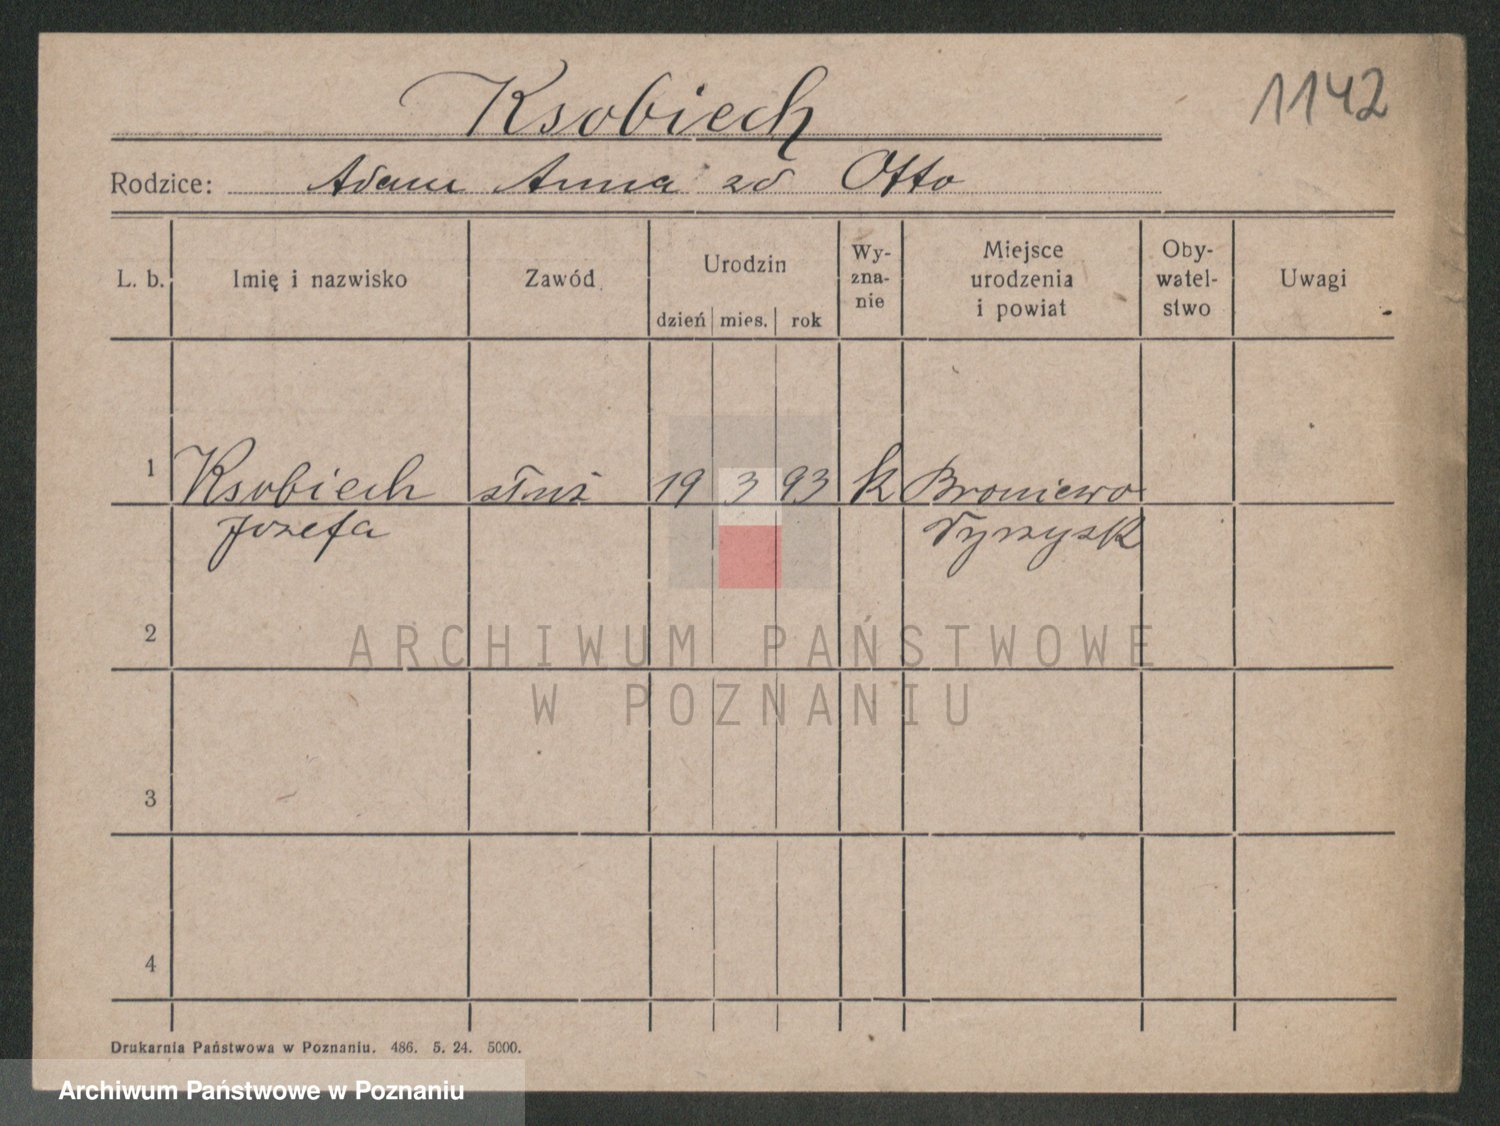 1142
Ksobiech
Rodzice: Adam Anna zd Otto
L. b.
Imię i nazwisko
Zawód
Urodzin
dzień mies. rok
Wy-
zna-
nie
Miejsce
urodzenia
i powiat
Oby-
watel-
stwo
Uwagi
1 Ksobiech służ 19 3 93 k Broniewo
Józefa Wyrzysk
2
3
4
ARCHIWUM PAŃSTWOWE
W POZNANIU
Drukarnia Państwowa w Poznaniu. 486. 5. 24. 5000.
Archiwum Państwowe w Poznaniu